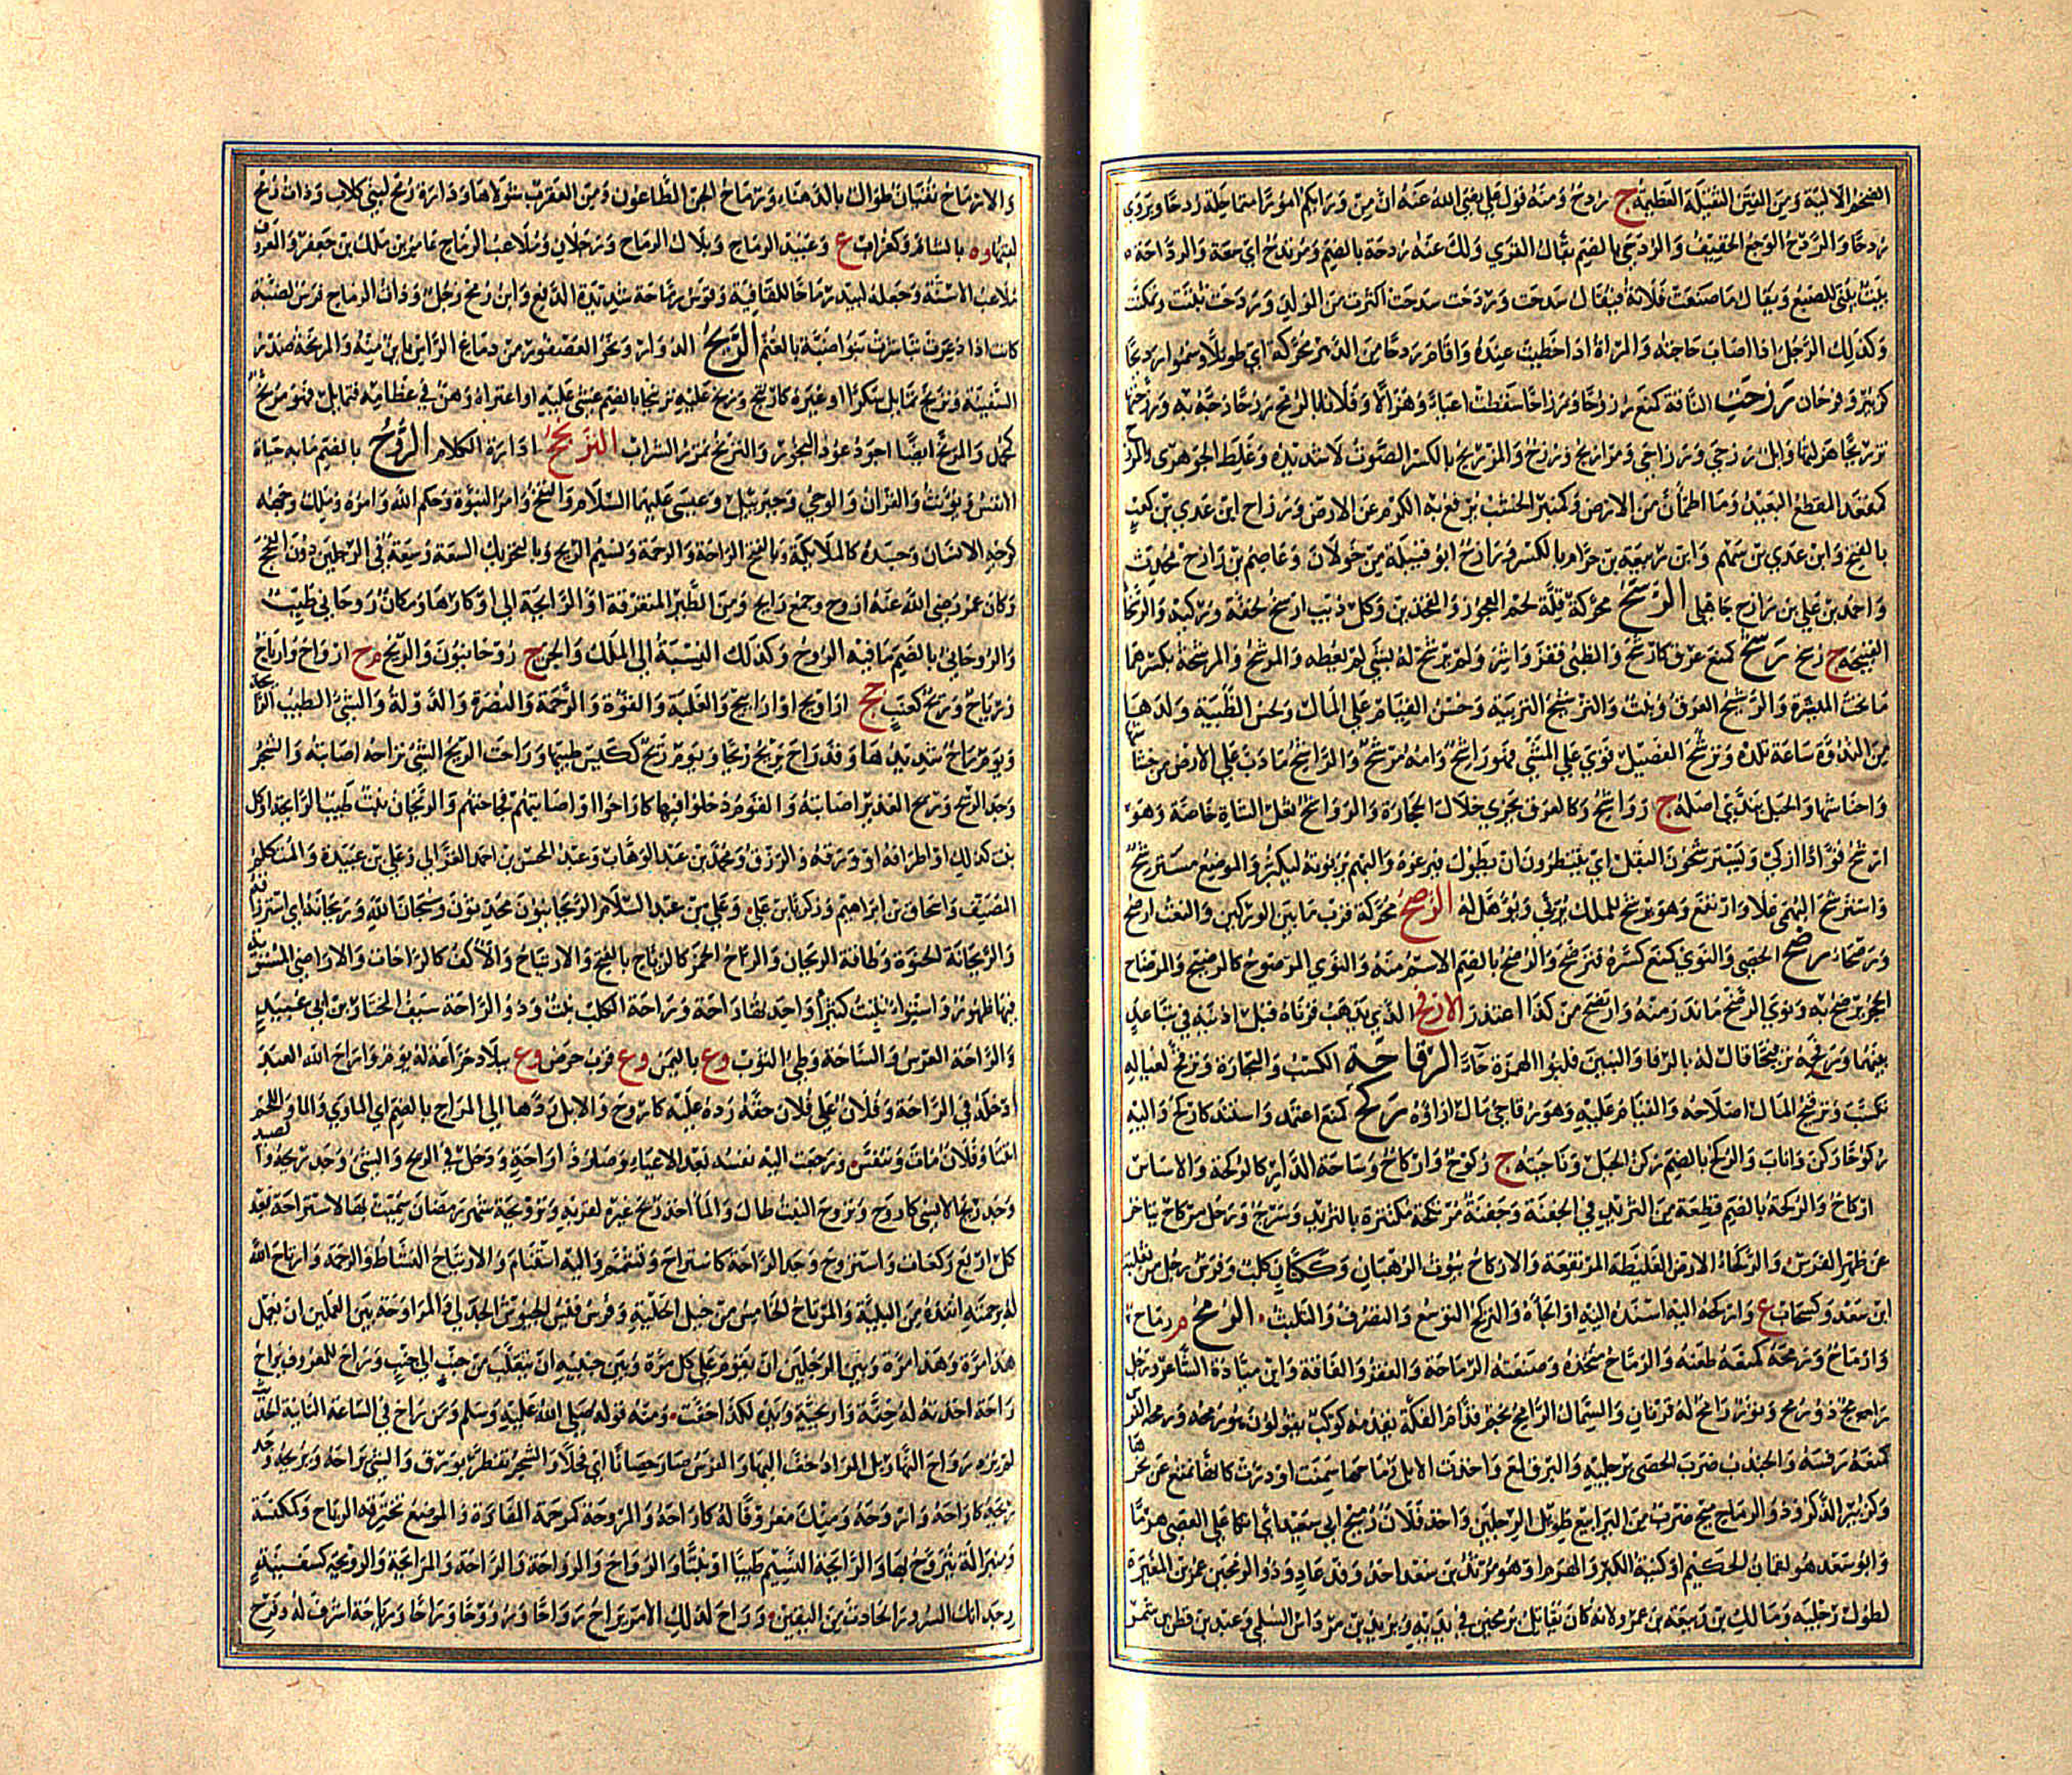 الضخم الالية ومن الفتن الثقيلة العظيمة ج ردح ومنه قول علي رضي الله عنه ان من ورائكم امورا متماحلة ردحا ويروى
ردحا والردح الوجع الخفيف والردحى بالضم بقال القرى ولك عنه ردحة بالضم ومرتدح اي سعة والرداحة
بيت يبنى للضبع ويقال ما صنعت فلانة فيقال سدحت وردحت سدحت اكثرت من الولد وردحت ثبتت وتمكنت
وكذلك الرجل اذا اصاب حاجته والمراة اذا حظيت عنده واقام ردحا من الدهر محركة اي طويلا وسموا رديحا
كزبير وفرحان رزحت الناقة كمنع رزوحا ورزاحا سقطت اعياء وهزالا وفلانا بالرمح رزحا زجه به ورزحتها
ترزيحا هزلتها وابل رزحى ورزاحى ومرازيح ورزح والمرزيح بالكسر الصوت لا شديده وغلط الجوهرى والمرزح
كمقعد المقطع البعيد وما اطمان من الارض وكمنبر الخشب يرفع به الكرم عن الارض ورزاح ابن عدي بن كعب
بالفتح وابن عدي بن سهم وابن ربيعة بن حرام بالكسر ورازح ابو قبيلة من خولان وعاصم بن رازح محدث
واحمد بن علي بن رازح جاهلي الرسح محركة قلة لحم العجز والفخذين وكل ذئب ارسح لخفة وركيه والرسحاء
القبيحة ج رسح رشح كمنع عرق كارشح والظبي قفز واشر ولم يرشح له بشي لم يعطه والمرشح والمرشحة بكسرهما
ما تحت الميثرة والرشيح العرق ونبت والترشيح التربية وحسن القيام على المال ولحس الظبية ولدها
من الندوة ساعة تلده وترشح الفصيل قوي على المشي فهو راشح وامه مرشح والراشح ما دب على الارض من خشاشها
واحناشها والجبل يندى اصله ج رواشح وكالعرق يجري خلال الحجارة والرواشح ثعل الشاة خاصة وهو
ارشح فؤادا اذكى ويسترشحون البقل اي ينتظرون ان يطول فيرعوه والبهم يربونه ليكبر والموضع مسترشح
واسترشح البهمى علا وارتفع وهو يرشح للملك يربى ويؤهل له الرصح محركة قرب ما بين الوركين والنعت ارصح
ورصحاء رضح الحصى والنوى كمنع كسره فترضح والرضح بالضم الاسم منه والنوى المرضوح كالرضيح والمرضاح
الحجر يرضح به ونوى الرضح ما ندر منه وارتضح من كذا اعتذر الارفح الذي يذهب قرناه قبل اذنيه في تباعد
بينهما ورفحه ترفيحا قال له بالرفا والبنين قلبوا الهمزة حاء الرقاحة الكسب والتجارة وترقح لعياله
تكسب وترقيح المال اصلاحه والقيام عليه وهو رقاحي مال ازاؤه ركح كمنع اعتمد واستند كاركح واليه
ركوحا ركن واناب والركح بالضم ركن الجبل وناحيته ج ركوح واركاح وساحة الدار كالركحة والاساس
اركاح والركحة بالضم قطعة من الثريد في الجفنة وجفنة مرتكحة مكتنزة بالثريد وسرج ورحل مركاح يتاخر
عن ظهر الفرس والركحاء الارض الغليظة المرتفعة والاركاح بيوت الرهبان وككتان كلب وفرس رجل من ثعلبة
ابن سعد وكسحاب ع واركحه اليه اسنده اليه او الجاه والتركح التوسع والتصرف والتلبث الرمح م رماح
وارماح ورمحه كمنعه طعنه والرماح متخذه وصنعته الرماحة والفقر والفاقة وابن ميادة الشاعر ورجل
رامح ذو رمح وثور رامح له قرنان والسماك الرامح نجم قدام الفكة يقدمه كوكب يقولون هو رمحه ورمحه الفرس
كمنعه رفسه والجندب ضرب الحصى برجليه والبرق لمع واخذت الابل رماحها سمنت او درت كانها تمنع عن نحرها
وكزبير الذكر وذو الرماح ضرب من اليرابيع طويل الرجلين واخذ فلان رميح ابي سعد اي اتكا على العصى هرما
وابو سعد هو لقمان الحكيم او كنية الكبر والهرم او هو مرثد بن سعد احد وفد عاد وذو الرمحين عمرو بن المغيرة
لطول رجليه ومالك بن ربيعة بن عمرو لانه كان يقاتل برمحين في يديه ويزيد بن مرداس السلمي وعبد بن قطن بن شمر
والارماح نقيان طوال بالدهناء ورماح الجن الطاعون ومن العقرب شولاها ودارة رمح لبني كلاب وذات رمح
لقبها وة بالشام وكغراب ع وعبيد الرماح وبلال الرماح رجلان وملاعب الرماح عامر بن مالك بن جعفر والمعروف
ملاعب الاسنة وجعله لبيد رماحا للقافية وقوس رماحة شديدة الدفع وابن رمح رجل وذات الرماح فرس لضبة
كانت اذا ذعرت تباشرت بنو ضبة بالغنم الرنح الدوار ونحو العصفور من دماغ الراس باين منه والمرنحة صدر
السفينة وترنح تمايل سكرا او غيره كارتنح ورنح عليه ترنيحا بالضم غشي عليه او اعتراه وهن في عظامه فتمايل فهو مرنح
كمحمد والمرنح ايضا اجود عود البخور والترنح تمزز الشراب الترنح ادارة الكلام الروح بالضم ما به حياة
الانفس ويؤنث والقران والوحي وجبريل وعيسى عليهما السلام والنفخ وامر النبوة وحكم الله وامره وملك وجهه
كوجه الانسان وجسده كالملائكة وبالفتح الراحة والرحمة ونسيم الريح وبالتحريك السعة وسعة في الرجلين دون الفحج
وكان عمر رضي الله عنه اروح وجمع رايح ومن الطير المتفرقة او الرائحة الى اوكارها ومكان روحاني طيب
والروحاني بالضم ما فيه الروح وكذلك النسبة الى الملك والجن ج روحانيون والريح م ج ارواح وارياح
ورياح وريح كعنب جج اراويح واراييح والغلبة والقوة والرحمة والنصرة والدولة والشئ الطيب والرائحة
ويوم راح شديدها وقد راح يريح ريحا ويوم ريح ككيس طيبها وراحت الريح الشي تراحه اصابته والشجر
وجد الريح وريح الغدير اصابته والقوم دخلوا فيها كاراحوا او اصابتهم فجاحتهم والريحان نبت طيب الرائحة او كل
نبت كذلك او اطرافه او ورقه والرزق ومحمد بن عبد الوهاب وعبد المحسن بن احمد الغزالي وعلي بن عبيدة والمتكلم
المصنف واسحاق بن ابراهيم وزكريا بن علي وعلي بن عبد السلام الريحانيون محدثون وسبحان الله وريحانه اي استرزاقه
والريحانة الحنوة وطاقة الريحان والراح الخمر كالرياح بالفتح والارتياح والاكف كالراحات والاراضي المستوية
فيها ظهور واستواء تنبت كثيرا واحدتها راحة وراحة الكلب نبت وذو الراحة سيف المختار بن ابي عبيد
والراحة العرس والساحة وطي الثوب وع باليمن وع قرب حرض وع ببلاد خزاعة له يوم واراح الله العبد
ادخله في الراحة وفلان على فلان حقه رده عليه كاروح والابل ردها الى المراح بالضم اي الماوى والماء واللحم
انتنا وفلان مات وتنفس ورجعت اليه نفسه بعد الاعياء وصار ذا راحة ودخل في الريح والشئ وجد ريحه والصيد
وجد ريح الانسي كاروح وتروح النبت طال والماء اخذ ريح غيره لقربه وترويحة شهر رمضان سميت بها لاستراحة بعد
كل اربع ركعات واستروح وجد الراحة كاستراح وتشمم واليه استنام والارتياح النشاط والرحمة وارتاح الله
له برحمته انقذه من البلية والمرتاح الخامس من خيل الحلبة وفرس قيس الجيوش الجدلي والمراوحة بين العملين ان يعمل
هذا مرة وهذا مرة وبين الرجلين ان يقوم على كل مرة وبين جنبيه ان يتقلب من جنب الى جنب وراح للمعروف يراح
راحة اخذته له خفة واريحية ويده لكذا خفت ومنه قوله صلى الله عليه وسلم ومن راح في الساعة الثانية الحديث
لم يرد رواح النهار بل المراد خف اليها والفرس صار حصانا اي فحلا والشجر تفطر بورق والشي يراحه ويريحه وجد
ريحه كاراحه واروحه ومنك معروفا ناله كاراحه والمروحة كمرحمة المفازة والموضع تخترقه الرياح وكمكنسة
ومنبر الة يتروح بها والرائحة النسيم طيبا او نتنا والرواح والرواحة والراحة والمرايحة والرويحة كسفينة
وجدانك السرور الحادث من اليقين وراح لذلك الامر يراح رواحا وروحا وراحا ورياحة اشرف له وفرح